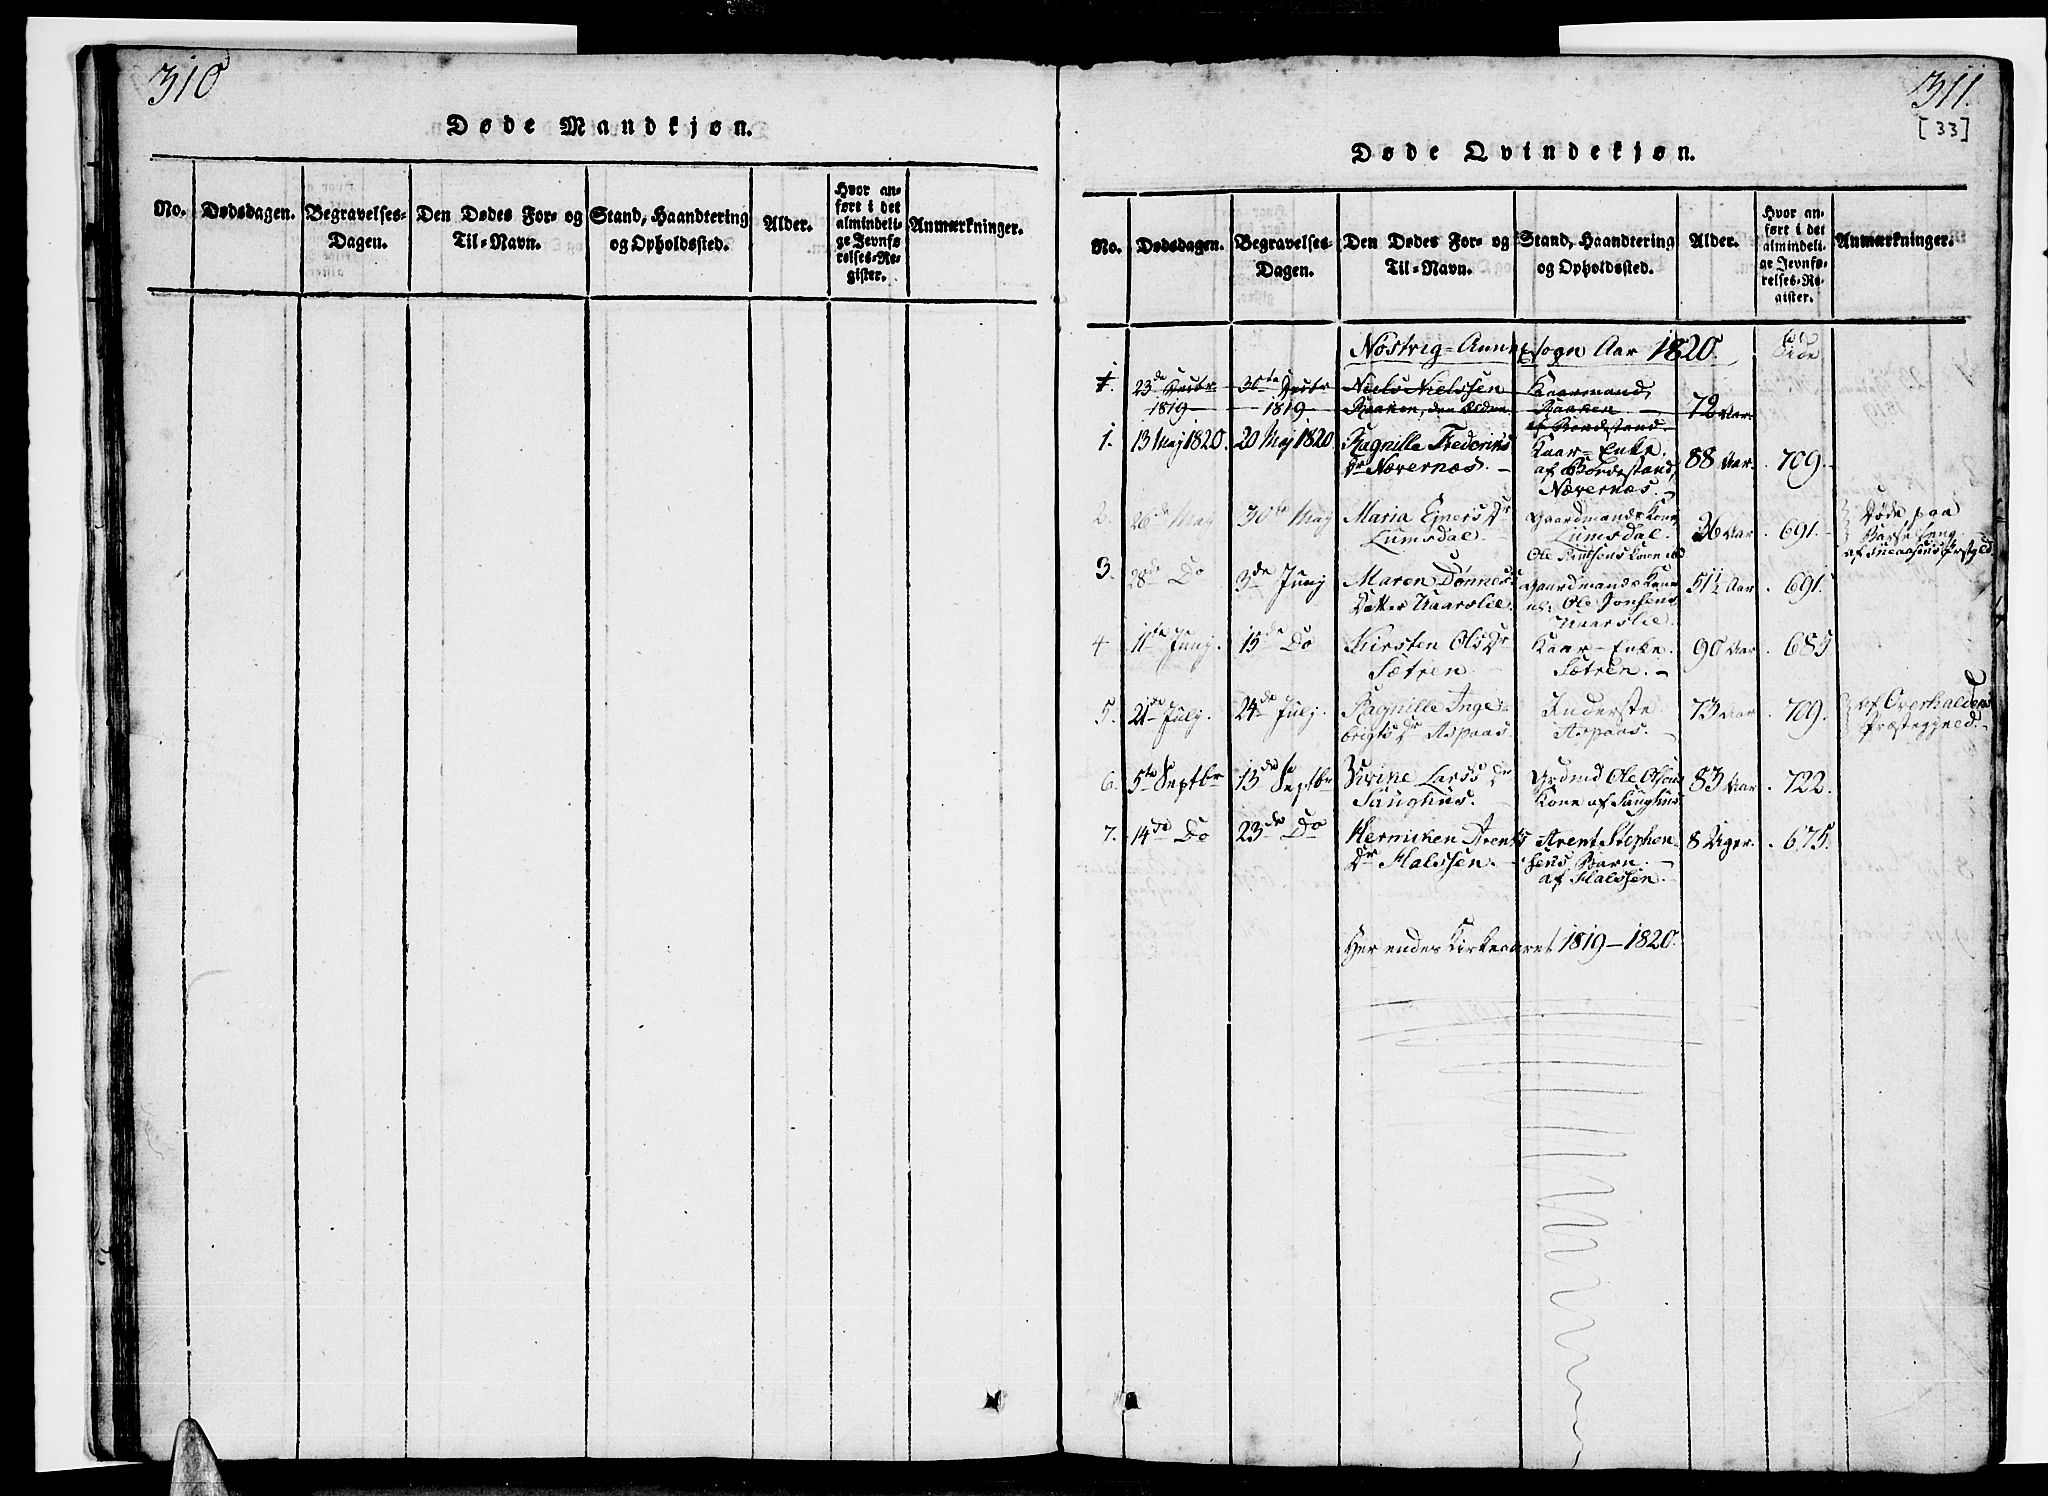 310
Døde Mandkjøn.
No.
Dødsdagen.
Begravelses-
Dagen.
Den Dødes For- og
Til-Navn.
Stand, Haandtering
og Opholdssted.
Alder.
Hvor an-
ført i det
almindeli-
ge Jevnfø
relses-Re-
gister.
Anmærkninger.
311.
[33]
Døde Qvindekjøn.
No.
Dødsdagen.
Begravelses-
Dagen.
Den Dødes For- og
Til-Navn.
Stand, Haandtering
og Opholdssted.
Alder.
Hvor an-
ført i det
almindeli-
ge Jevnfø-
relses-Re-
gister.
Anmærkninger.
Aar 1820.
1. 23de 1819 30te 1819 Niels Nielssen Kaarmand 72 Aar
af Bondestand.
1. 13 Maj 1820. 20 Maj 1820 Ragnille
Dr Nævernæs. Kaar-Enke af Bondestand, Nævernæs. 88 Aar. 709.
2. 26de Maj 30te Maj Maria Ejners Dr
Lumsdal. Gaardmands Kone Lumsdal. 36 Aar. 691. Døde paa
Barselseng
3. 28de Do 3de Junj Maren Dønnes
Datter Gaardmands Kone Ole Jonsens 51½ Aar. 691.
4 11te Junj. 15de Do Kirsten Ols Dr
Sætren Kaar-Enke. Sætren. 90 Aar. 685
5. 21de Julj. 24de Julj. Ragnille Inge-
brigts Dr Aspaas. Inderste Aspaas. 73 Aar. 709. af Overhaldens
Præstegjeld.
6. 5te Septbr 13de Septbr Lars Dr
Saughus. Ole Olsens Kone af Saughus 83 Aar. 722.
7. 14de Do 23de Do Hernichen Arents
Dr Halssen. Arent Stephen-
sens Barn.
af Halssen. 8 Uger. 675.
Her endes Kirkeaaret 1819-1820.